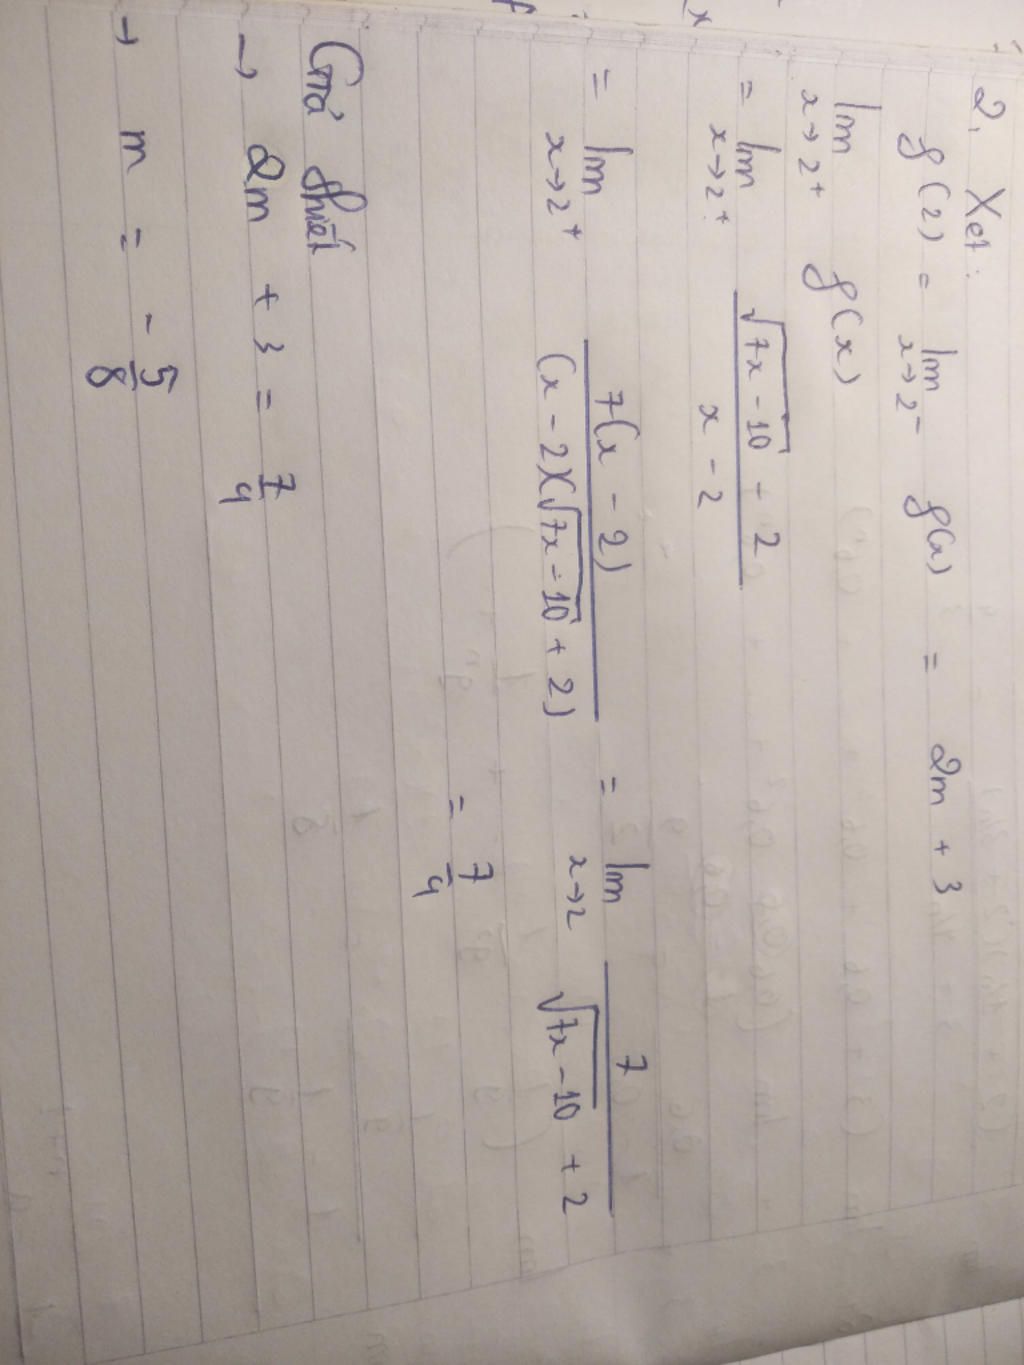 2, Xét:
f(2) = lim x→2⁻ f(x) = 2m + 3
lim x→2⁺ f(x)
= lim x→2⁺ (√(7x - 10) - 2)/(x - 2)
= lim x→2⁺ 7(x - 2)/((x - 2)(√(7x - 10) + 2)) = lim x→2 7/(√(7x - 10) + 2)
= 7/4
Giả thiết
→ 2m + 3 = 7/4
→ m = -5/8